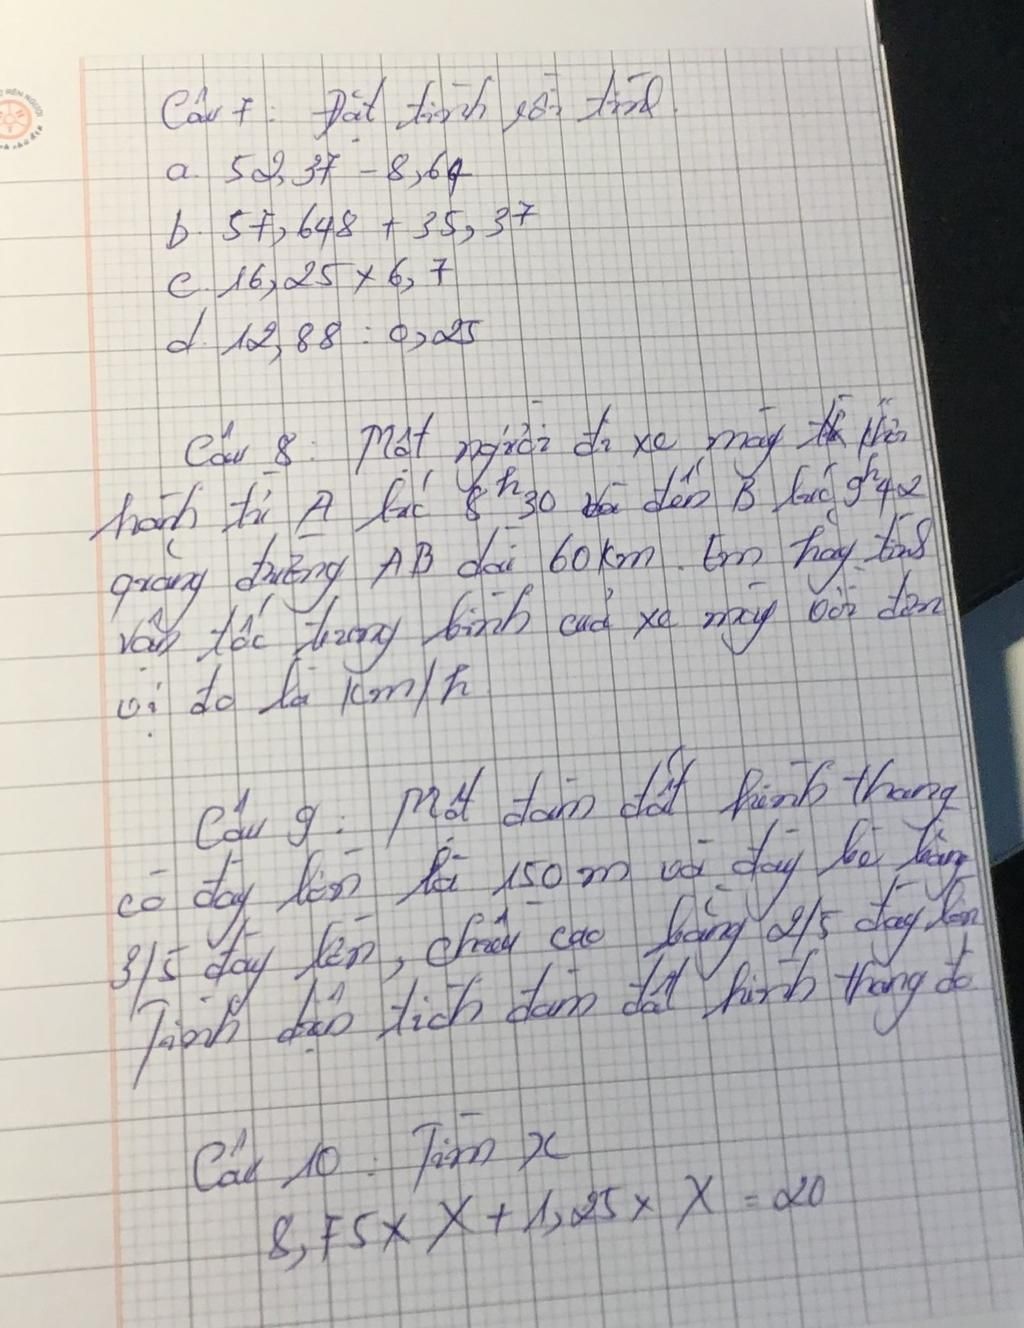 Câu 7: Đặt tính rồi tính.
a. 52,37 - 8,64
b. 57,648 + 35,37
c. 16,25 x 6,7
d. 12,88 : 0,25
Câu 8: Một người đi xe máy khởi
hành từ A lúc 8h30 và đến B lúc 9h42
quãng đường AB dài 60km. Em hãy tính
vận tốc trung bình của xe máy với đơn
vị đo là km/h
Câu 9: Một đám đất hình thang
có đáy lớn là 150 m và đáy bé bằng
3/5 đáy lớn, chiều cao bằng 2/5 đáy lớn
Tính diện tích đám đất hình thang đó
Câu 10: Tìm x
8,75 x X + 1,25 x X = 20